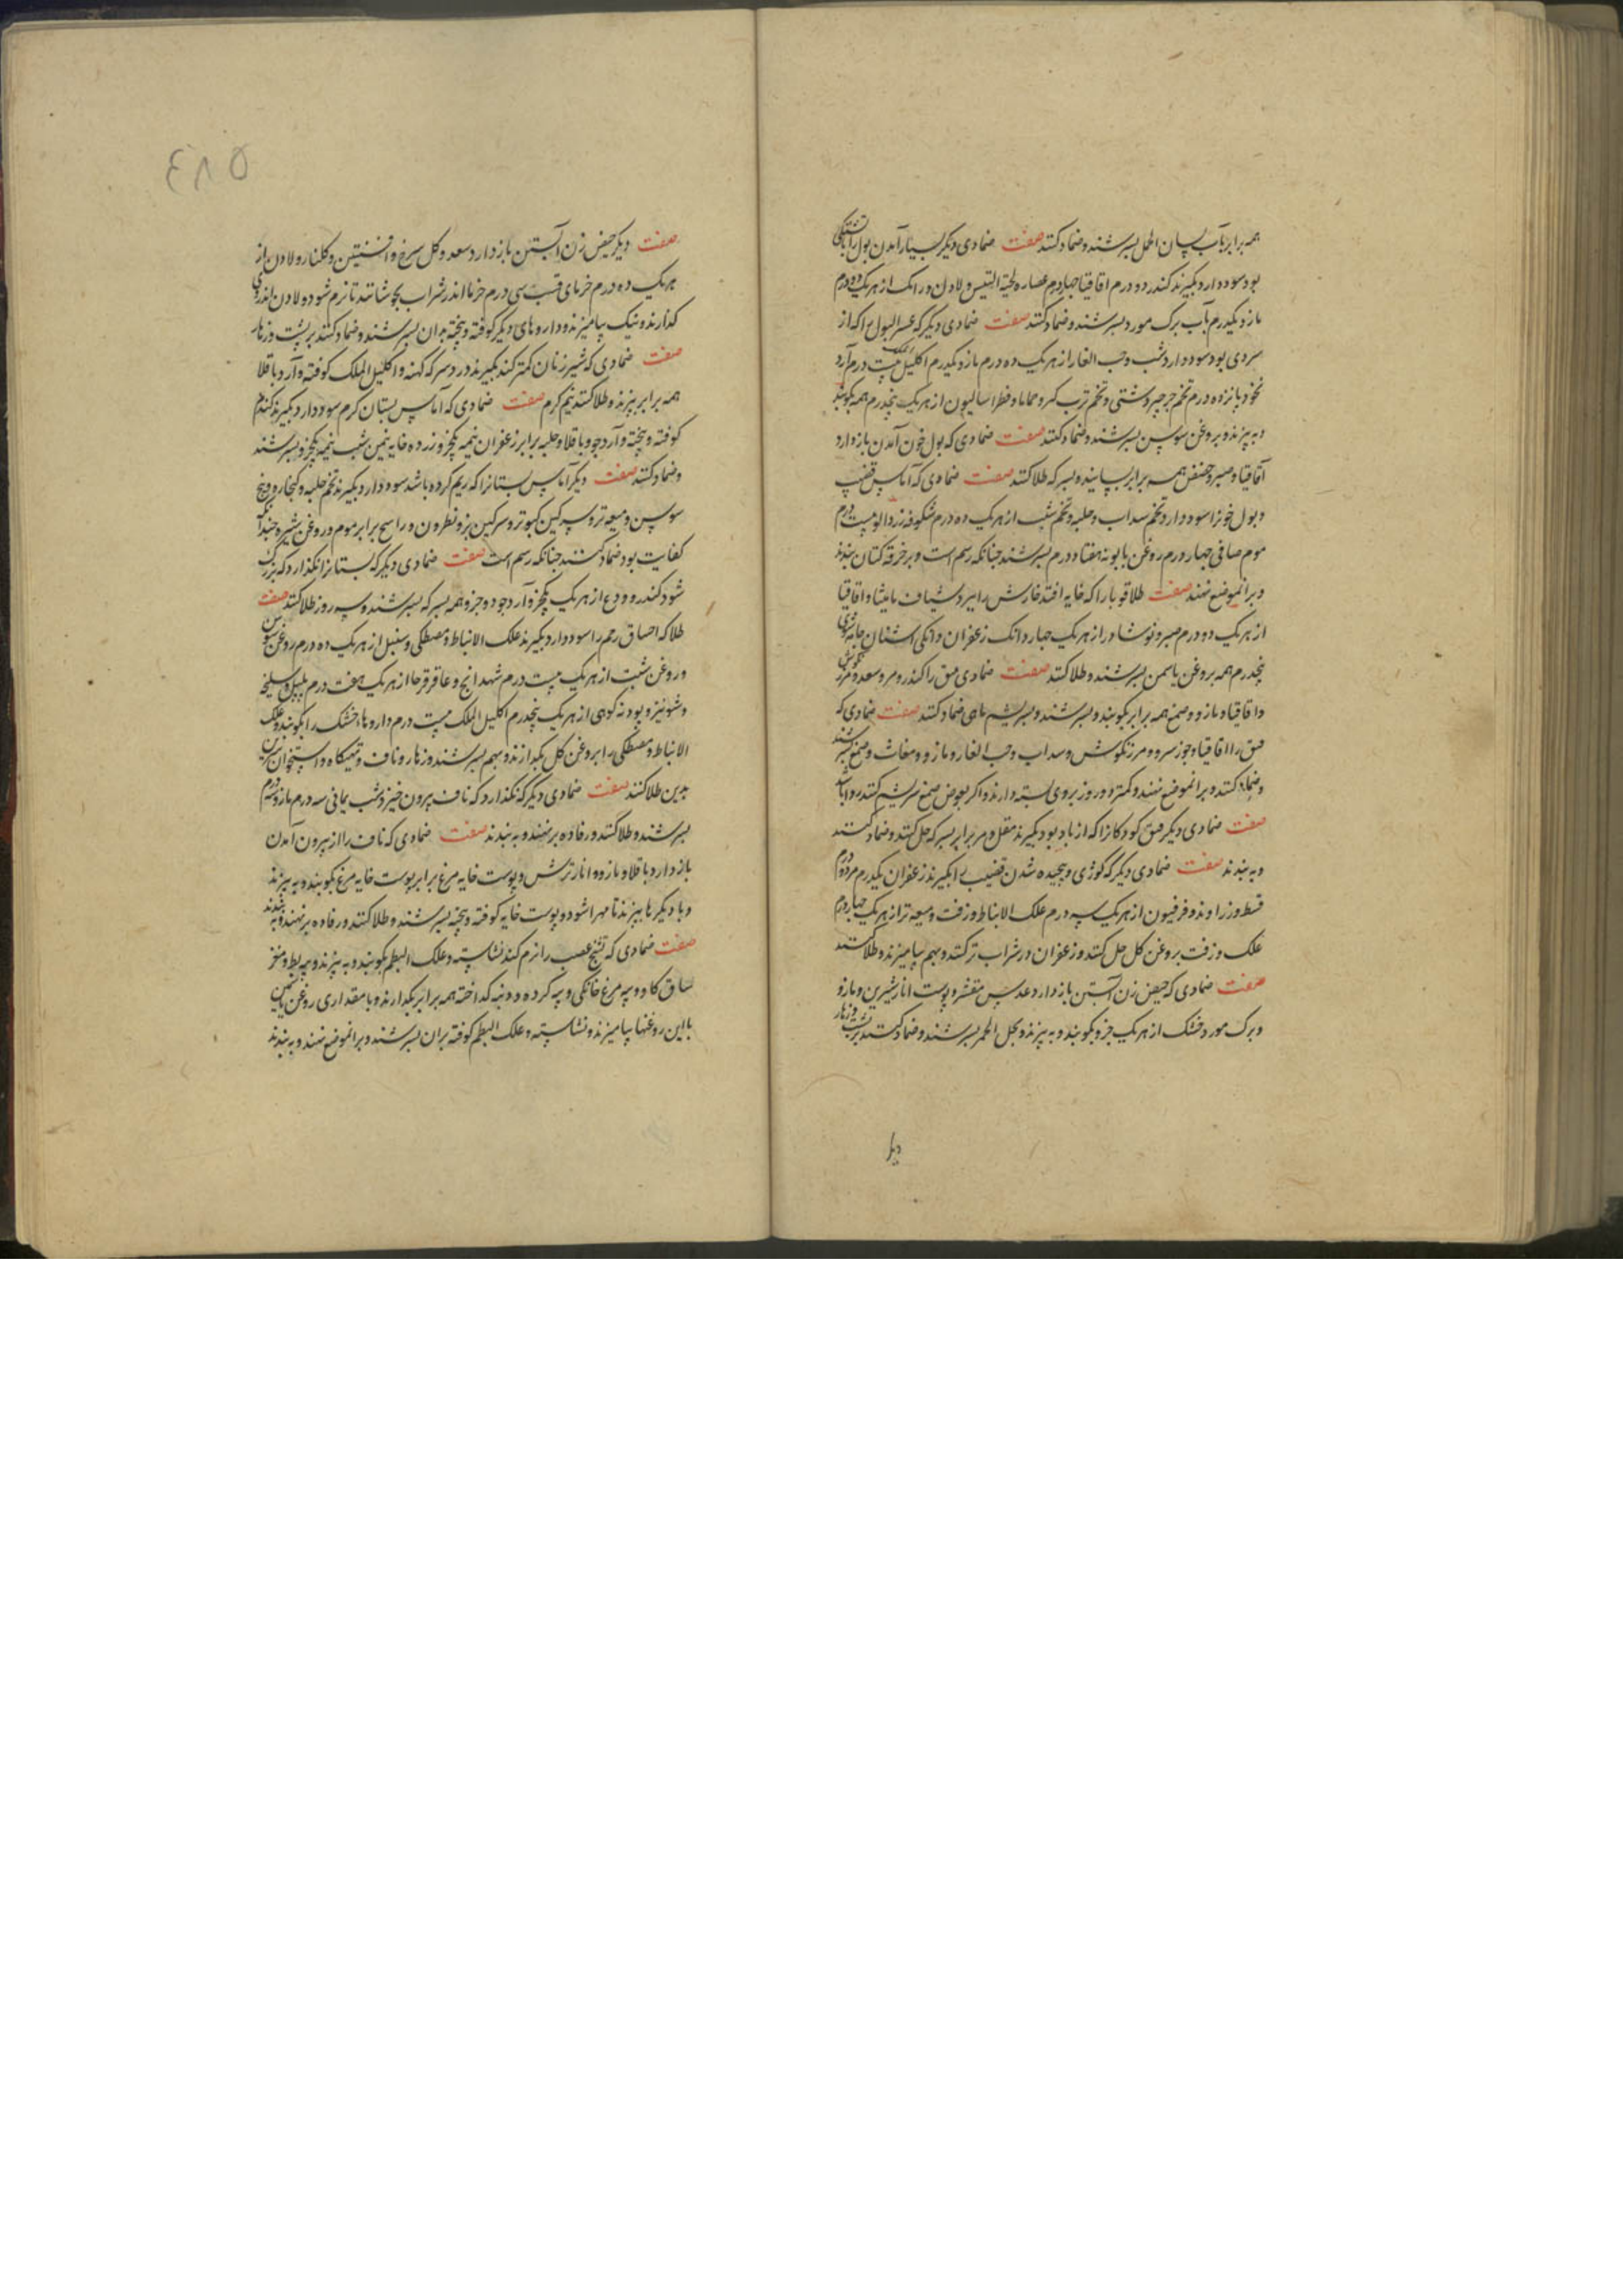 همه برابر بآب لسان الحمل بسرشند و ضماد کنند صفت ضمادی دیگر بسیار آمدن بول را با تشنگی
بود سود دارد بگیرند کندر دو درم اقاقیا چهار درم عصاره لحیة التیس و لادن و رامک از هریک دو درم
مازو یکدرم بآب برک مورد بسرشند و ضماد کنند صفت ضمادی دیگر که عسر البول را که از
سردی بود سود دارد شب و حب الغار از هریک ده درم مازو یکدرم اکلیل الملک بیست درم آرد
نخود پانزده درم تخم جرجیر دشتی و تخم ترب کمروحماما و فطراسالیون از هریک پنجدرم همه بکوبند
و به پزند و بروغن سوسن بسرشند و ضماد کنند صفت ضمادی که بول خون آمدن باز دارد
اقاقیا و صبر و حضض همه برابر بسایند و بسرکه طلا کنند صفت ضمادی که آماس قضیب
و بول خونرا سود دارد تخم سداب و حلبه و تخم شبت از هریک ده درم شکوفه زردالو بیست درم
موم صافی چهار درم روغن بابونه هفتاد درم بسرشند چنانکه رسم است و بر خرقه کتان بندند
و بر انموضع نهند صفت طلا قوبا را که خایه افتد خارش را ببرد شیاف مامیثا و اقاقیا
از هریک دو درم صبر و نوشادر از هریک چهار دانک زعفران دانکی اشنان جامه شوی
پنجدرم همه بروغن یاسمین بسرشند و طلا کنند صفت ضمادی فتق را کندر و مر و سعد و مرزنجوش
و اقاقیا و مازو و صمغ همه برابر بکوبند و بسرشند و بسریشم ماهی ضماد کنند صفت ضمادی که
فتق را اقاقیا و جوز سرو و مرزنکوش و سداب و حب الغار و مازو و مغاث و صمغ بسرشند
و ضماد کنند و بر انموضع نهند و کمتر دو روز بروی بسته دارند و اکر بعوض صمغ سریشم کنند روا باشد
صفت ضمادی دیگر فتق کودکانرا که از باد بود بگیرند مقل و مر برابر بسرکه حل کنند و ضماد کنند
و به بندند صفت ضمادی دیگر که کوژی و پیچیده شدن قضیب را بگیرند زعفران یکدرم مر دو درم
قسط و زراوند و فرفیون از هریک سه درم علک الانباط و زفت و میعه تر از هریک چهار درم
علک و زفت بروغن کل حل کنند و زعفران در شراب تر کنند و بهم بیامیزند و طلا کنند
صفت ضمادی که حیض زن آبستن باز دارد عدس مقشر و پوست انار شیرین و مازو
و برک مورد خشک از هریک جزو بکوبند و به پزند و بخل الخمر بسرشند و ضماد کنند بر پشت و زهار
دیگر
۵۸۴
صفت دیگر حیض زن آبستن باز دارد سعد و کل سرخ و افسنتین و کلنار و لادن از
هریک ده درم خرمای قسب سی درم خرما اندر شراب بجوشانند تا نرم شود و لادن اندروی
کدازند و نیک بیامیزند و داروهای دیگر کوفته و پخته بدان بسرشند و ضماد کنند بر پشت و زهار
صفت ضمادی که شیر زنان کمتر کند بگیرند درد سرکه کهنه و اکلیل الملک کوفته و آرد باقلا
همه برابر بپزند و طلا کنند نیم کرم صفت ضمادی که آماس پستان کرم سود دارد بگیرند کندم
کوفته و پخته و آرد جو و باقلا و حلبه برابر زعفران نیمه یکجزو زرده خایه نیمین شب نیمه یکجزو بسرشند
و ضماد کنند صفت دیگر آماس پستانرا که ریم کرده باشد سود دارد بگیرند تخم حلبه و کنجاره و بیخ
سوسن و میعه تر و سرکین کبوتر و سرکین بز و نطرون و راسخ برابر موم و روغن شیره چندانکه
کفایت بود ضماد کنند چنانکه رسم است صفت ضمادی دیگر که پستانرا نکذارد که بزرک
شود کندر و ودع از هریک یکجزو آرد جو دو جزو همه بسرکه بسرشند و سه روز طلا کنند صفت
طلا که اختناق رحم را سود دارد بگیرند علک الانباط و مصطکی و سنبل از هریک ده درم روغن سوسن
و روغن شبت از هریک بیست درم شهدانج و عاقرقرحا از هریک هفت درم پلپل و سلیخه
و شونیز و پودنه کوهی از هریک پنجدرم اکلیل الملک بیست درم داروهاء خشک را بکوبند و علک
الانباط و مصطکی را بروغن کل بکدازند و بهم بسرشند و زهار و ناف و تهیکاه و استخوان سرین
بدین طلا کنند صفت ضمادی دیگر که نکذارد که ناف بیرون خیزد شب یمانی سه درم مازو سه درم
بسرشند و طلا کنند و رفاده بر نهند و به بندند صفت ضمادی که ناف را از بیرون آمدن
باز دارد باقلا و مازو و انار ترش و پوست خایه مرغ برابر پوست خایه مرغ بکوبند و به پزند
و با دیگرها بپزند تا مهرا شود و پوست خایه کوفته و پخته بسرشند و طلا کنند و رفاده بر نهند و به بندند
صفت ضمادی که تشنج عصب را نرم کند نشاسته و علک البطم بکوبند و به پزند و پیه بط و مغز
ساق کاو و پیه مرغ خانکی و پیه کرده و دنبه کداخته همه برابر بکدازند و با مقداری روغن یاسمین
با این روغنها بیامیزند و نشاسته و علک البطم کوفته بران بسرشند و بر انموضع نهند و به بندند